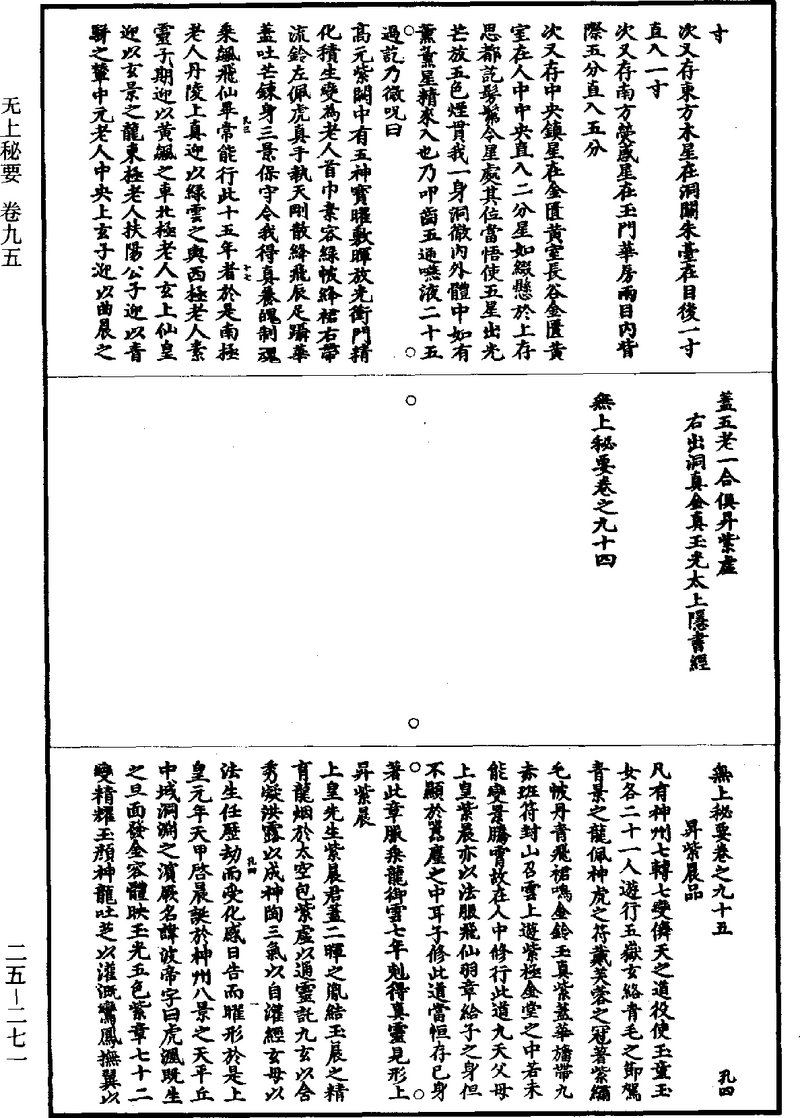 无上秘要 卷九五
二五—二七一
寸
次又存東方木星在洞闕朱臺在目後一寸
直入一寸
次又存南方熒惑星在玉門華房兩目內眥
際五分直入五分
次又存中央鎮星在金匱黃室長谷金匱黃
室在人中中央直入二分星如綴懸於上存
思都訖髣髴令星處其位當悟使五星出光
芒放五色煙貫我一身洞徹內外體中如有
薰薰星精來入也乃叩齒五通嚥液二十五
過訖乃微呪曰
高元紫闕中有五神寶曜敷暉放光衝門精
化積生變為老人首巾素容綠帔絳裙右帶
流鈴左佩虎真手執天剛散絳飛辰足躡華
蓋吐芒鍊身三景保守令我得真養魄制魂
乘飆飛仙畢常能行此十五年者於是南極
老人丹陵上真迎以綠雲之輿西極老人素
靈子期迎以黃飆之車北極老人玄上仙皇
迎以玄景之龍東極老人扶陽公子迎以青
軿之輦中元老人中央上玄子迎以曲晨之
蓋五老一合俱昇紫虛
右出洞真金真玉光太上隱書經
無上秘要卷之九十四
無上秘要卷之九十五
孔四
昇紫晨品
凡有神州七轉七變儛天之道役使玉童玉
女各二十一人遊行五嶽玄絡青毛之節駕
青景之龍佩神虎之符戴芙蓉之冠著紫繡
毛帔丹青飛裙鳴金鈴玉真紫蓋華旛帶九
赤班符封山召雲上遊紫極金堂之中若未
能變景騰霄故在人中修行此道九天父母
上皇紫晨亦以法服飛仙羽章給子之身但
不顯於嚚塵之中耳子修此道當恒存已身
著此章服乘龍御雲七年剋得真靈見形上
昇紫晨
上皇先生紫晨君蓋二暉之胤結玉晨之精
育龍烟於太空包紫虛以通靈託九玄以含
秀凝洪露以成神陶三氣以自灌經玄母以
法生任歷劫而受化感日吉而曜形於是上
皇元年天甲啓晨誕於神州八景之天平丘
中域洞淵之濱厥名諱波帝字曰虎溫既生
之旦面發金容體映玉光五色紫章七十二
變精耀玉顏神龍吐芝以灌溉鸞鳳撫翼以